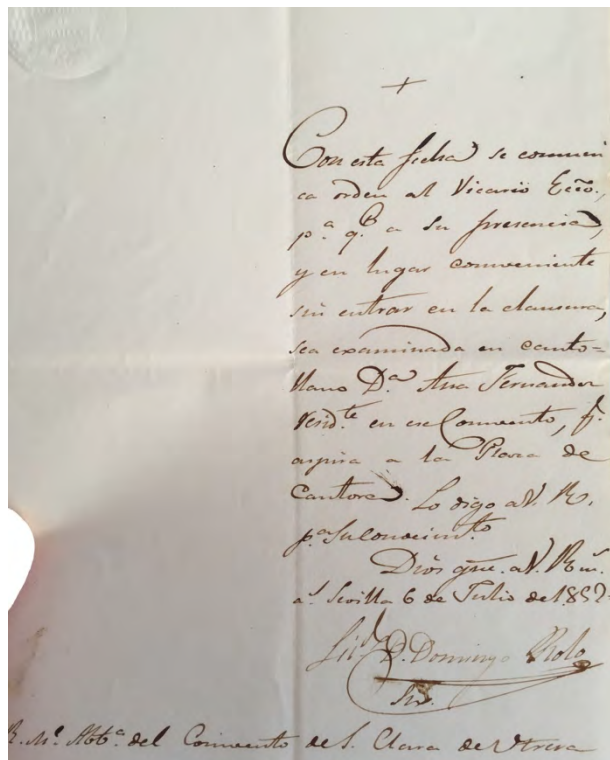 Con esta fecha se comuni
ca orden al Vicario Ecco.,
p.ª q.e a su presencia,
y en lugar conveniente
sin entrar en la clausura,
sea examinada en canto=
llano D.ª Ana Fernandez
resid.te en ese Convento, q.
aspira a la Plaza de
Cantora. Lo digo a V. R.
p.ª su conocim.to
Dios gue. a V. R. m.s
a.s Sevilla 6 de Julio de 1852.
Lic.do D. Domingo Rolo
Srio.
R. M.e Abb.ª del Convento de S. Clara de Utrera